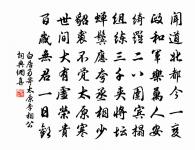 聞道北都今一變
政和軍樂萬人安
綺羅二八圍賓榻
組練三千夾將壇
蟬鬢應夸丞相少
貂裘不覺太原寒
世間大有虛榮貴
百歲無君一日歡
白居易寄太原李相公
詞典網